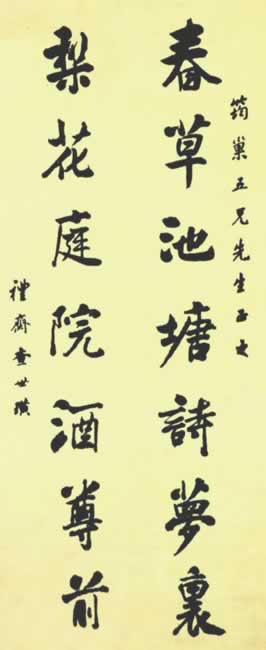 筠巢五兄先生正之
春草池塘詩夢裏
梨花庭院酒尊前
禮齋查世璜